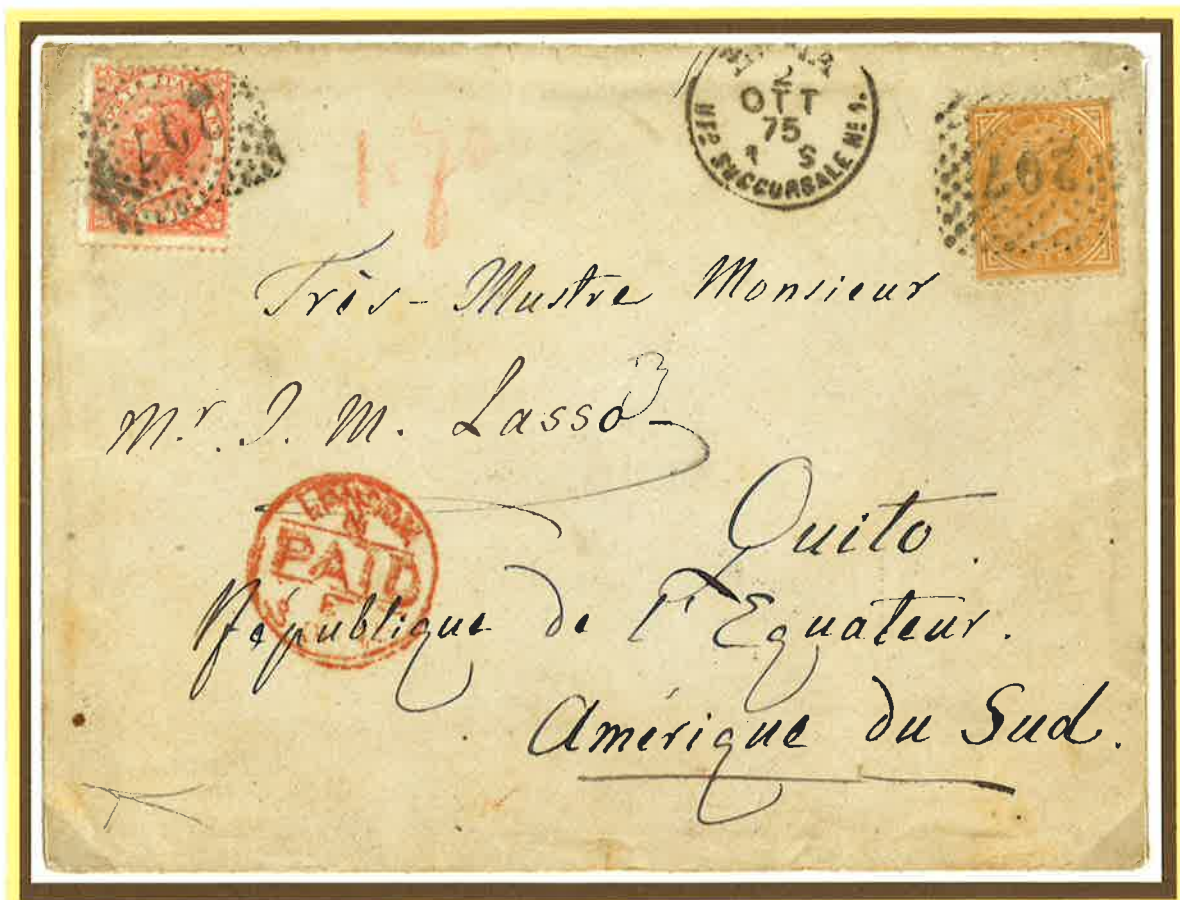 207
1.70
2
OTT
75
1 S
UFº SUCCURSALE Nº 1.
207
Très-Illustre Monsieur
Mr. J. M. Lasso
LONDON
N
PAID
7
Quito.
République de l'Equateur.
Amérique du Sud.